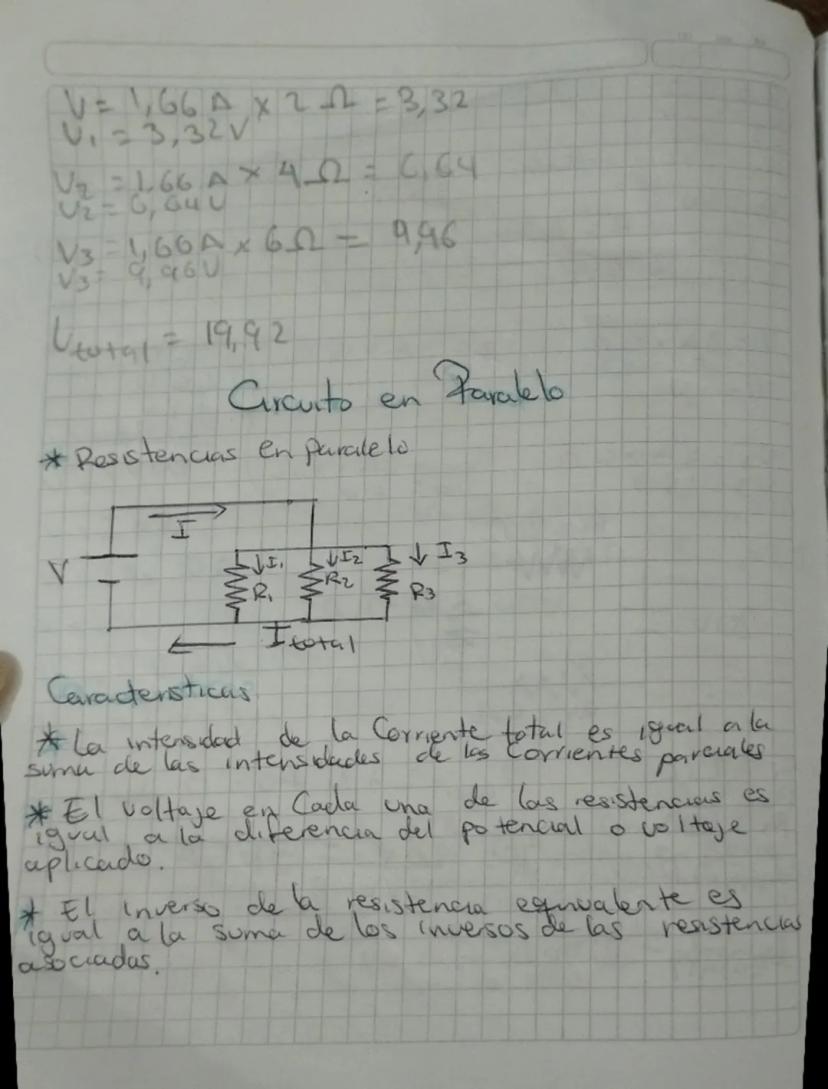 V = 1,66 A × 2 Ω = 3,32
V₁ = 3,32V
V₂ = 1,66 A × 4 Ω = 6,64
V₂ = 6,64V
V₃ = 1,66A × 6Ω = 9,96
V₃ = 9,96V
Vtotal = 19,92
Circuito en Paralelo
* Resistencias en paralelo
I
V
↓I₁ ↓I₂ ↓ I₃
R₁ R₂ R₃
I total
Caracteristicas
* La intensidad de la Corriente total es igual a la
suma de las intensidades de las Corrientes parciales
* El voltaje en Cada una de las resistencias es
igual a la diferencia del potencial o voltaje
aplicado.
* El inverso de la resistencia equivalente es
igual a la suma de los inversos de las resistencias
asociadas.